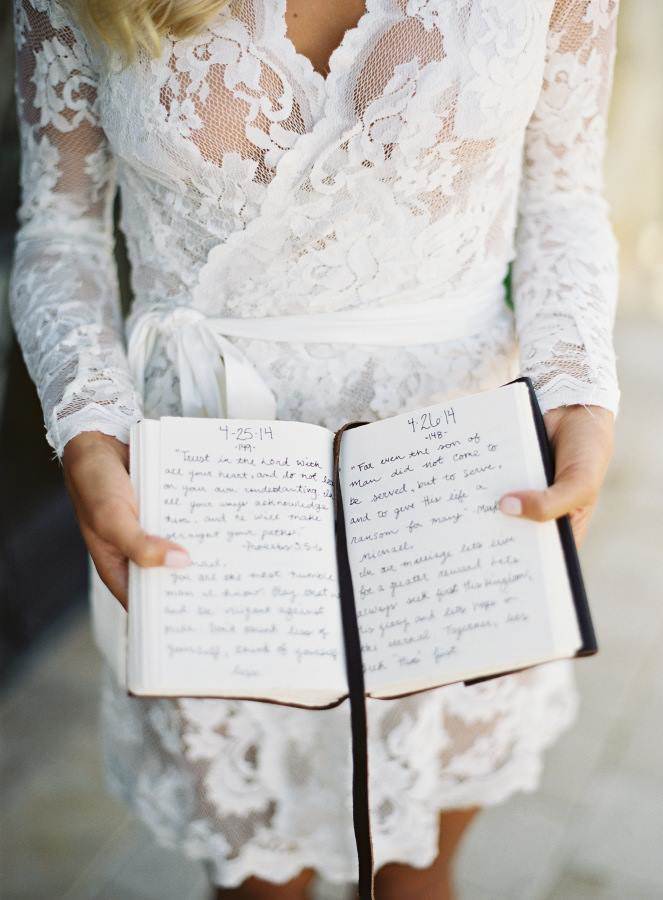 4-25-14
-149-
"Trust in the Lord with
all your heart, and do not
on your own undestanting
all your ways acknowledge
him, and he will make
straight your paths."
-Proverbs 3:5-6
You are the most humble
man I know. Pray that
and be vigilant against
pride. Don't think less of
yourself, think of yourself
less.
4.26.14
-148-
"For even the son of
man did not come to
be served, but to serve,
and to give His life a
ransom for many." -Mark
Michael,
In our marriage lets live
for a greater reward. Lets
always seek first His kingdom,
His glory and lets hope on
the eternal. Together, lets
seek "this" first.